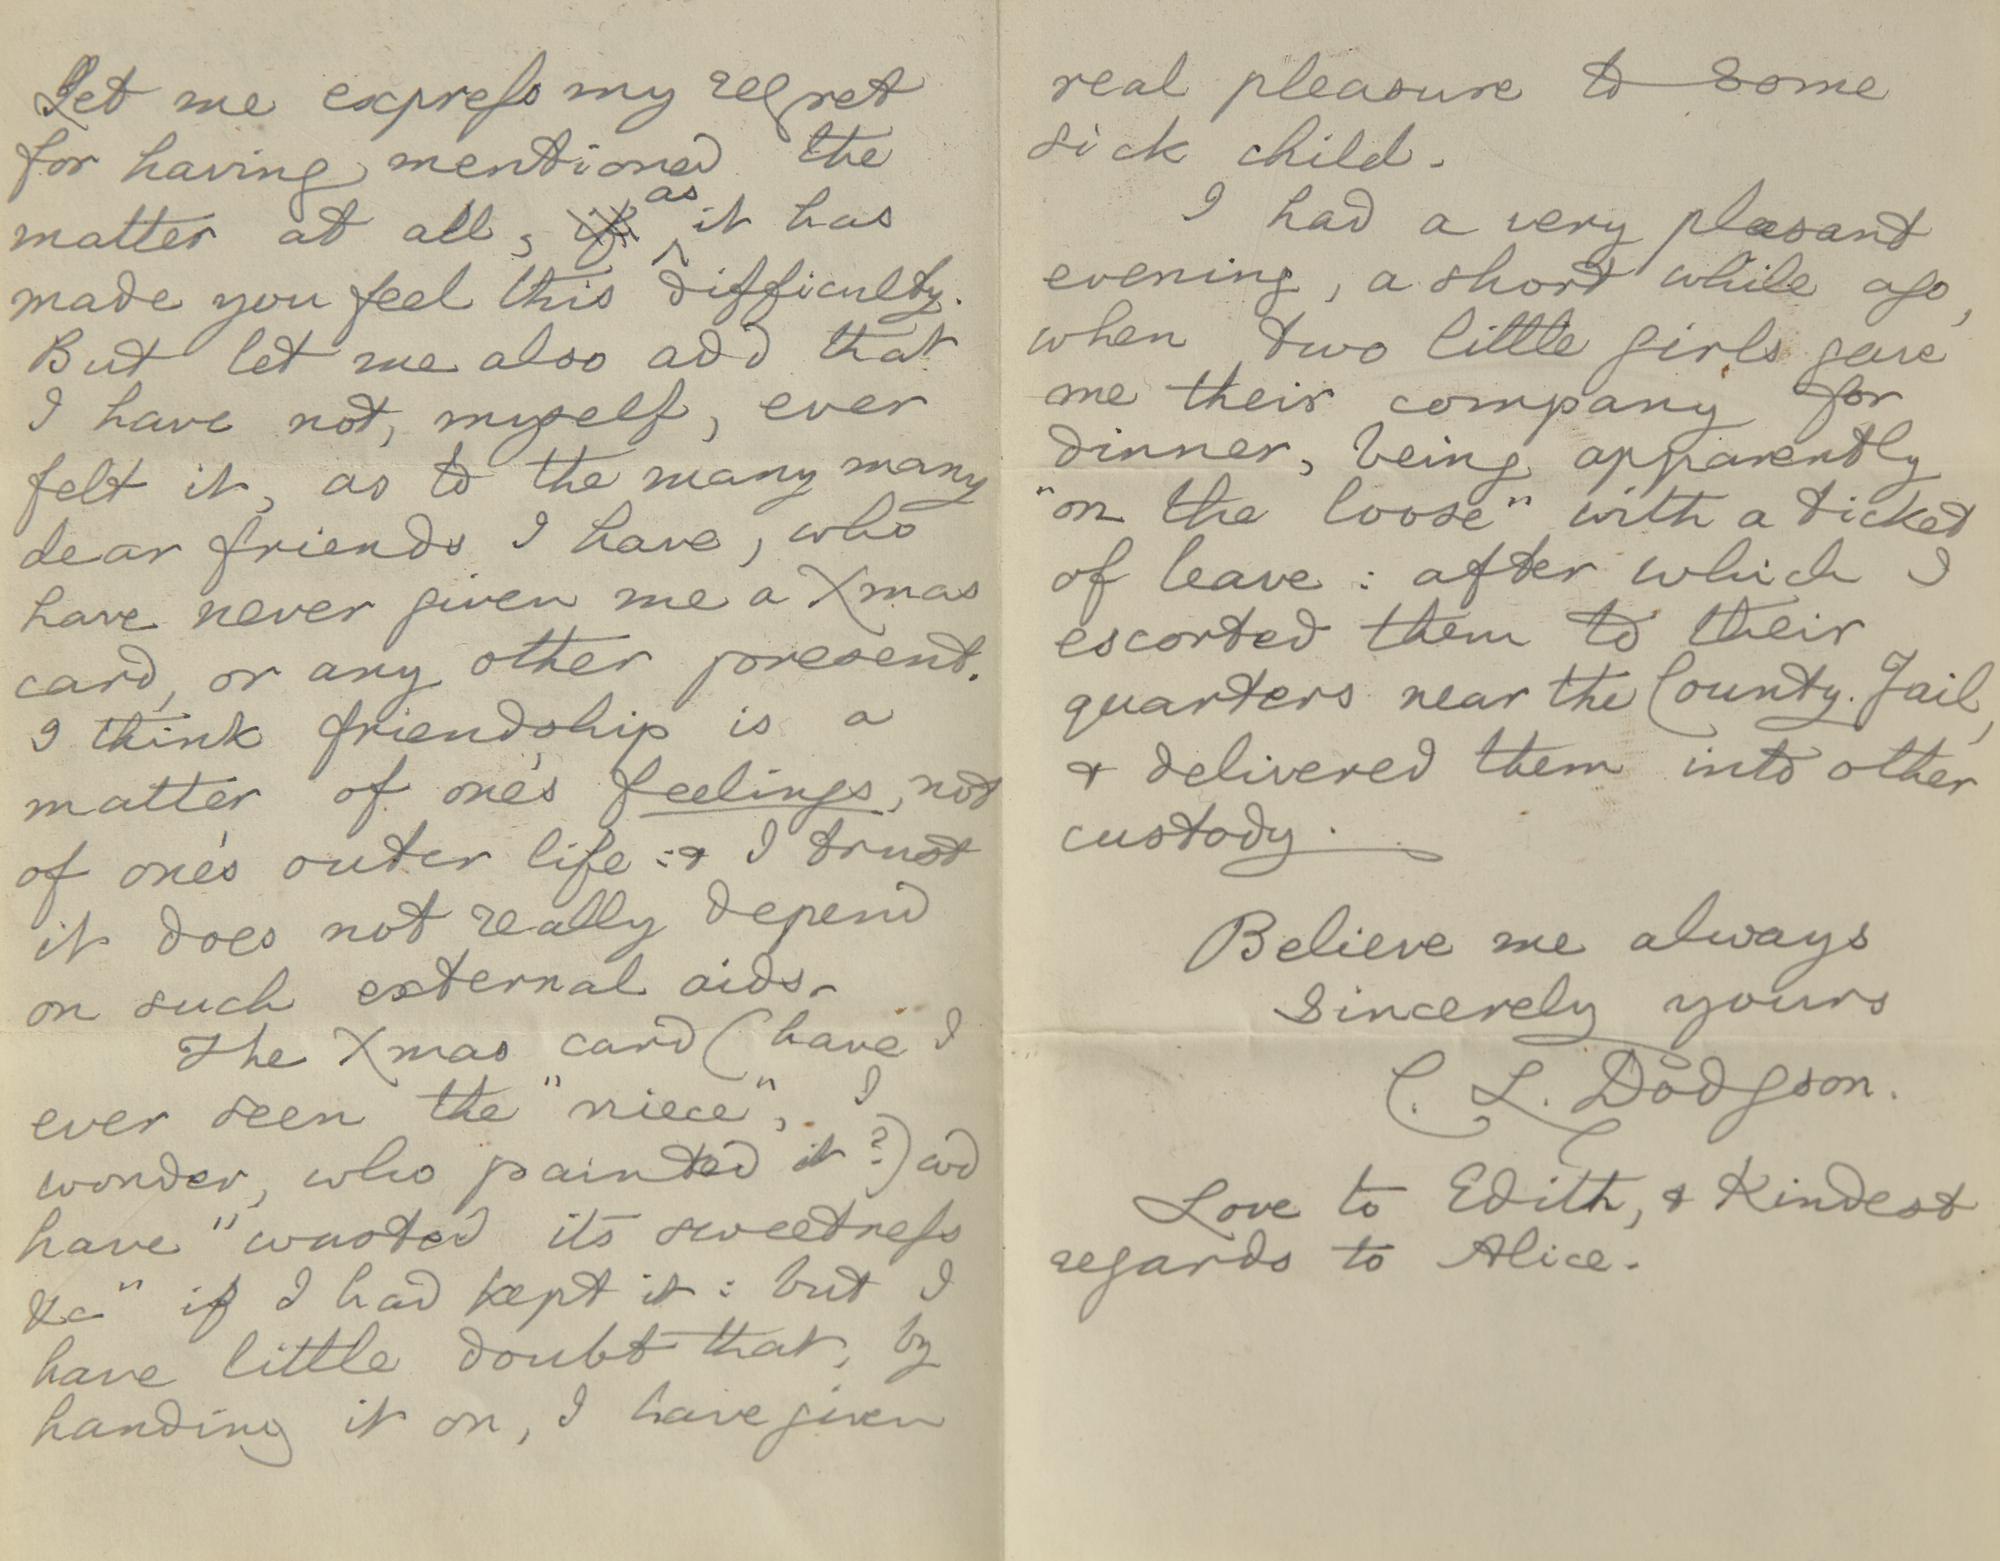 Let me express my regret
for having mentioned the
matter at all, as it has
made you feel this difficulty.
But let me also add that
I have not, myself, ever
felt it, as to the many many
dear friends I have, who
have never given me a Xmas
card, or any other present.
I think friendship is a
matter of one's feelings, not
of one's outer life: & I trust
it does not really depend
on such external aids.
The Xmas card (have I
ever seen the "niece", I
wonder, who painted it?) wd
have "wasted its sweetness
&c" if I had kept it: but I
have little doubt that, by
handing it on, I have given
real pleasure to some
sick child.
I had a very pleasant
evening, a short while ago,
when two little girls gave
me their company for
dinner, being apparently
"on the loose" with a ticket
of leave: after which I
escorted them to their
quarters near the County Jail,
& delivered them into other
custody.
Believe me always
sincerely yours
C. L. Dodgson.
Love to Edith, & kindest
regards to Alice.